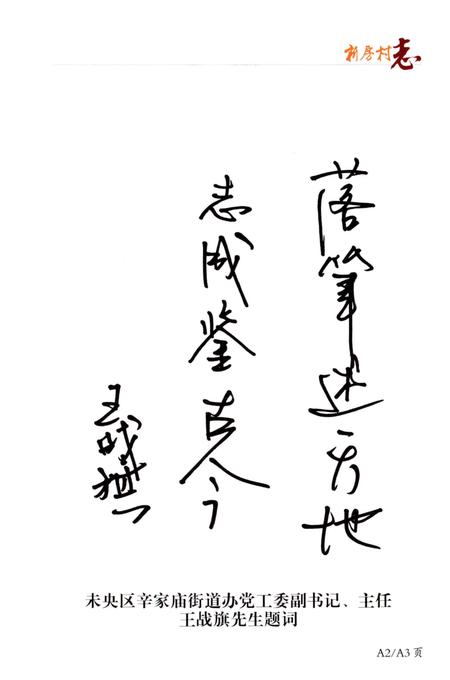 新房村志
落筆述天地
志成鉴古今
王战旗
未央区辛家庙街道办党工委副书记、主任
王战旗先生题词
A2/A3 页